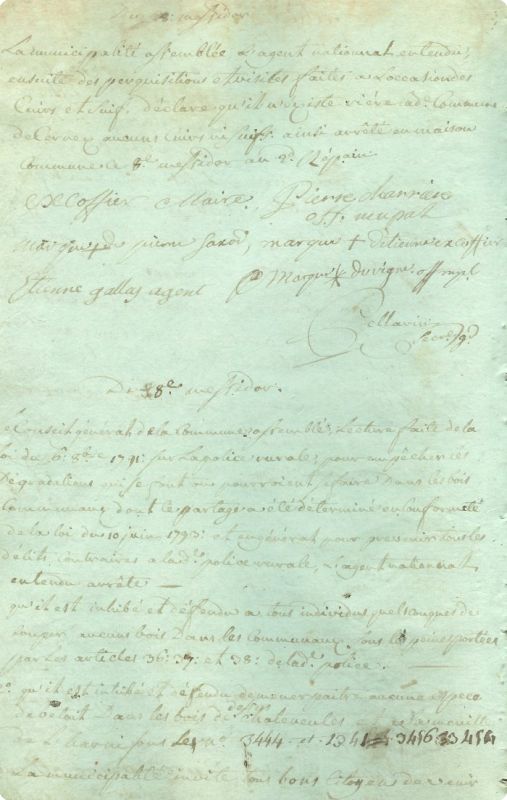 Du 8e messidor
La municipalité assemblée L'agent national entendu;
ensuite des perquisitions et visites faites a L'occasion des
Cuirs et Suif. déclare qu'il n'existe rière lade Commune
de Cerney aucuns Cuirs ni Suifs. ainsi arrêté en maison
Commune le 8e messidor an 2d Répain
excoffier Maire Pierre charrière
off. munpal
marque + de pierre saxod, marque + d'étienne excoffier
Etienne gallay agent Marque + duvigne off mpl
Pellarin
secre
Du 8e messidor.
Le Conseil général de la Commune assemblé; Lecture faite de la
loi du 6e 8bre 1791: sur la police rurale; pour empêcher les
Dégradations qui se font ou pourroient se faire dans les bois
Communaux dont le partage a été déterminé en Conformité
de la loi du 10 juin 1793: et en général pour prévenir tous les
délits contraires a lade police rurale, L'agent national
entendu arrête —
qu'il est inhibé et défendu a tous individus quelconques de
couper aucuns bois Dans les Communaux sous les peines portées
par Les articles 36: 37: et 38: de lade police. —
2° qu'il est inhibé et défendu de mener paitre aucune espece
de bétail Dans les bois de Chateneules et
de sous Les n° 3444 et 1341 3456 33454
La municipalité invite tous bons Citoyens de venir